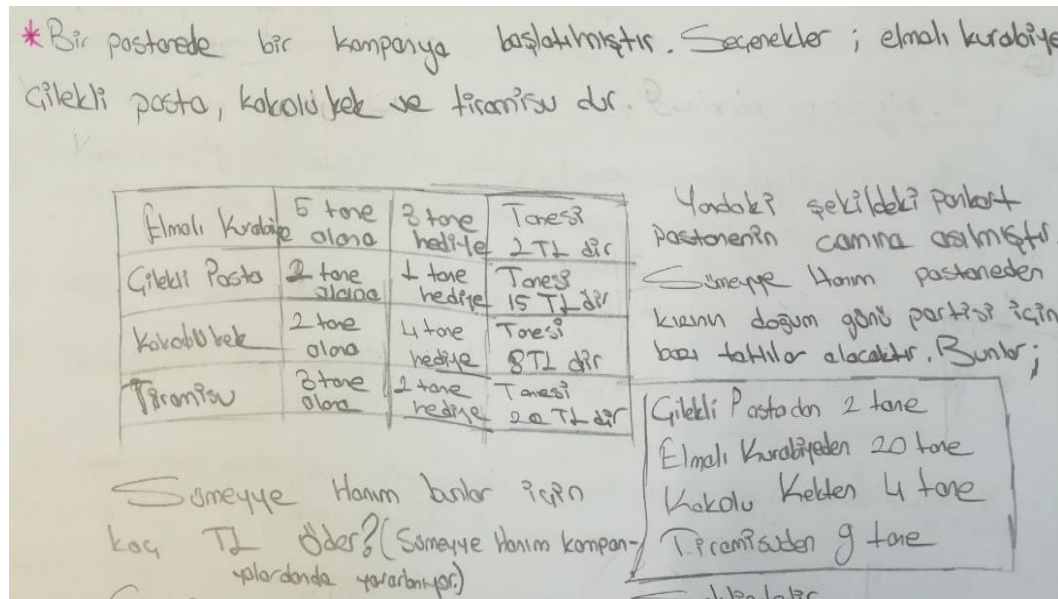 *Bir pastanede bir kampanya başlatılmıştır. Seçenekler ; elmalı kurabiye
Çilekli pasta, kakolu kek ve tiramisu dur.
Elmalı Kurabiye 5 tane alana 3 tane hediye Tanesi 2 TL dir
Çilekli Pasta 2 tane alana 1 tane hediye Tanesi 15 TL dir
Kakaolu kek 2 tane alana 4 tane hediye Tanesi 8 TL dir
Tiramisu 3 tane alana 2 tane hediye Tanesi 20 TL dir
Yandaki şekildeki pankart
pastanenin camına asılmıştır
Sümeyye Hanım pastaneden
kızının doğum günü partisi için
bazı tatlılar alacaktır. Bunlar;
Çilekli Pastadan 2 tane
Elmalı Kurabiyeden 20 tane
Kakolu Kekten 4 tane
Tiramisuden 9 tane
Sümeyye Hanım bunlar için
kaç TL öder? (Sümeyye Hanım kampan-
yalardanda yararlanıyor.)